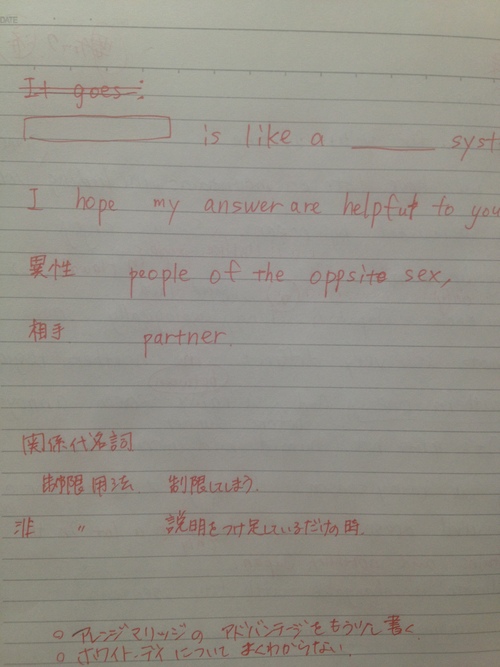 DATE
It goes :
is like a ______ syst
I hope my answer are helpful to you
異性 people of the oppsite sex,
相手 partner.
関係代名詞
制限用法 制限してしまう.
非 〃 説明をつけ足しているだけの時.
○ アレンジマリッジの アドバンテージをもう少し書く
○ ホワイト・デイ について よくわからない.